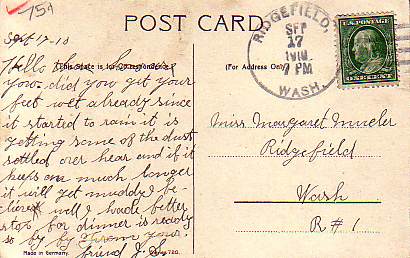 75¢
POST CARD
Sept 17-10
This Space is for Correspondence
(For Address Only)
Hello
you did you get your
feet wet already since
it started to rain it is
getting some of the dust
settled over hear and if it
keeps on much longer
it will get muddy be-
lieve well I had better
stop for dinner is ready
so by by from your
friend J. S.
Made in Germany.
RIDGEFIELD,
SEP
17
1910
7 PM
WASH.
U.S. POSTAGE
ONE CENT
Miss Margaret Mueler
Ridgefield
Wash
R#1